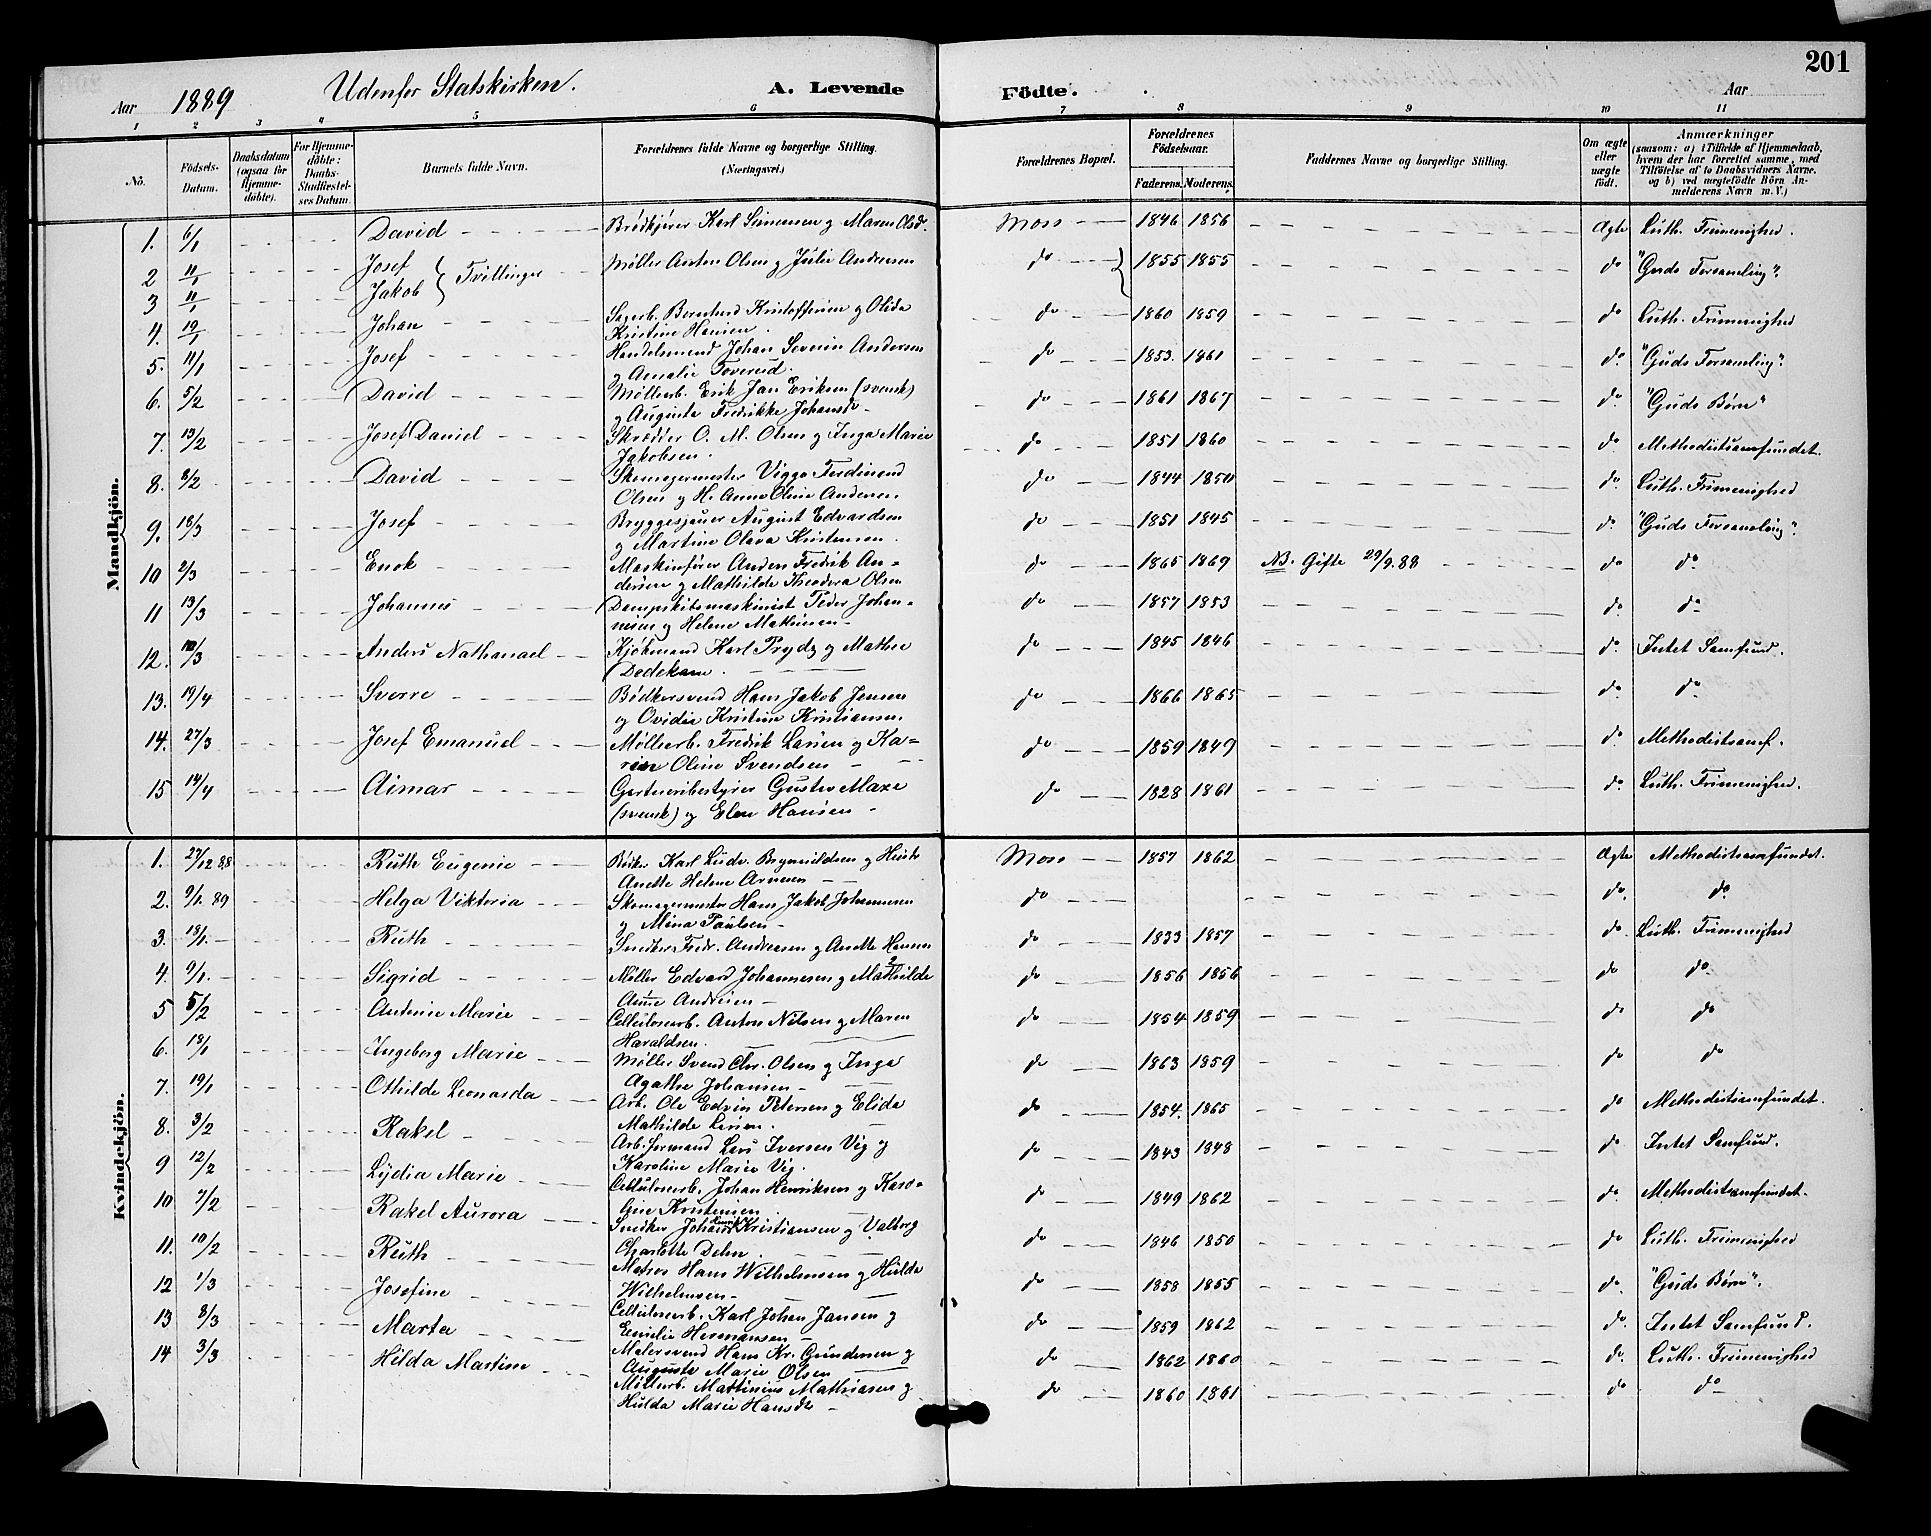 201
Aar 1889 Udenfor Statskirken. A. Levende Födte. Aar
1 2 3 4 5 6 7 8 9 10 11
No. Födsels-Datum. Daabsdatum (ogsaa for Hjemme-döbte). For Hjemme-döbte: Daabs-Stadfæstelses Datum. Barnets fulde Navn. Forældrenes fulde Navne og borgerlige Stilling. (Næringsvei.) Forældrenes Bopæl. Forældrenes Födselsaar. Faderens. Moderens. Faddernes Navne og borgerlige Stilling. Om ægte eller uægte födt. Anmærkninger (saasom: a) i Tilfælde af Hjemmedaab, hvem der har forrettet samme, med Tilföielse af to Daabsvidners Navne, og b) ved uægtefödte Börn Anmelderens Navn m. V.)
Mandkjön.
1. 6/1 David Brødkjører Karl Simensen og Maren Olsd. Moss 1846 1856 Ægte Luth. Frimenighed.
2 11/1 Josef } Tvillinger Møller Anton Olsen og Julie Andersen do 1855 1855 do "Guds Forsamling".
3 11/1 Jakob
4. 10/1 Johan Sagarb. Bernhard Kristoffersen og Olida
Kristine Hansen. do 1860 1859 do Luth. Frimenighed
5. 11/1 Josef Handelsmand Johan Severin Andersen
og Amalie Toverud. do 1853. 1861 do. "Guds Forsamling".
6. 5/2 David Møllerb. Erik Jan Eriksen (svensk)
og Augusta Fredrikke Johansd. do 1861 1867 do. "Guds Børn"
7. 13/2 Josef Daniel Skrædder O. M. Olsen og Inga Marie
Jakobsen. do 1851 1860 do. Methodistsamfundet.
8. 8/2 David Skomagermester Viggo Ferdinand
Olsen og H. Anna Oline Andersen. do 1844 1850 do. Luth. Frimenighed
9. 18/3 Josef Bryggesjauer August Edvardsen
og Martine Olava Kristensen. do 1851 1845 do. "Guds Forsamling".
10 2/3 Enok Maskinfører Anders Fredrik An-
dersen og Mathilde Theodora Olsen do 1865 1869 NB. Gifte 29/9.88 do do
11 13/3 Johannes Dampskibsmaskinist Peder Johan-
nesen og Helene Mathisen do 1857 1853 do. do
12. /3 Anders Nathanael Kjøbmand Karl Pryds og Mathea
Dedekam. do 1845 1846 do. Intet Samfund.
13. 19/4 Sverre Bødkersvend Hans Jakob Jensen
og Ovidia Kristine Kristiansen. do 1866 1865 do. do
14. 27/3 Josef Emanuel Møllerb. Fredrik Larsen og Ka-
ren Oline Svendsen do 1859 1849 do. Methodistsamf.
15 14/4 Aimar Gartneribestyrer Gustav Maxe
(svensk) og Elen Hansen do 1828 1861 do. Luth. Frimenighed.
Kvindekjön.
1. 27/12 88 Ruth Eugenie Karl Ludv. Brynildsen og
Anette Helene Arnesen Moss 1857 1862 Ægte Methodistsamfundet.
2. 9/1. 89 Helga Viktoria Skomagermester Hans Jakob Johannesen
og Mina Paulsen do do. do.
3. 13/1. Ruth Snedker Fredr. Andreasen og Anette Hansen do 1833 1857 do. Luth. Frimenighed
4. 9/1. Sigrid Møller Edvard Johannesen og Mathilde
Anne Andersen do 1856 1856 do do
5 5/2 Antonie Marie Cellulosearb. Anton Nilsen og Maren
Haraldsen. do 1854 1859 do do
6. 18/1 Ingeborg Marie Møller Svend Chr. Olsen og Inga
Agathe Johansen do 1863 1859 do do
7. 19/1 Othilde Leonarda Arb. Ole Edvin Petersen og Elida
Mathilde do 1854. 1865 do Methodistsamfundet.
8. 3/2 Rakel Arb. formand Lars Iversen Vig og
Karoline Marie Vig. do 1843 1848 do Intet Samfund.
9 12/2 Lydia Marie Cellulosearb. Johan Henriksen og Karo-
line Kristensen do 1849 1862 do. Methodistsamfundet.
10 7/2 Rakel Aurora Snedker Johan Henrik Kristiansen og Valborg
Charlotte Dehn. do 1846 1850 do Luth. Frimenighed
11. 10/2 Ruth Matros Hans Wilhelmsen og Hulda
Wilhelmsen do 1858 1855 do. "Guds Børn".
12 1/3 Josefine Cellulosearb. Karl Johan Jansen og
Emelie Hermansen do 1859 1862 do. Intet Samfund.
13 8/3 Marta Malersvend Hans Kr. Gundersen og
Auguste Marie Olsen do 1862 1860 do. Luth. Frimenighed
14 3/3 Hilda Martine Møllerb. Martinius Mathiasen og
Hulda Marie Hansdr do 1860 1861 do do